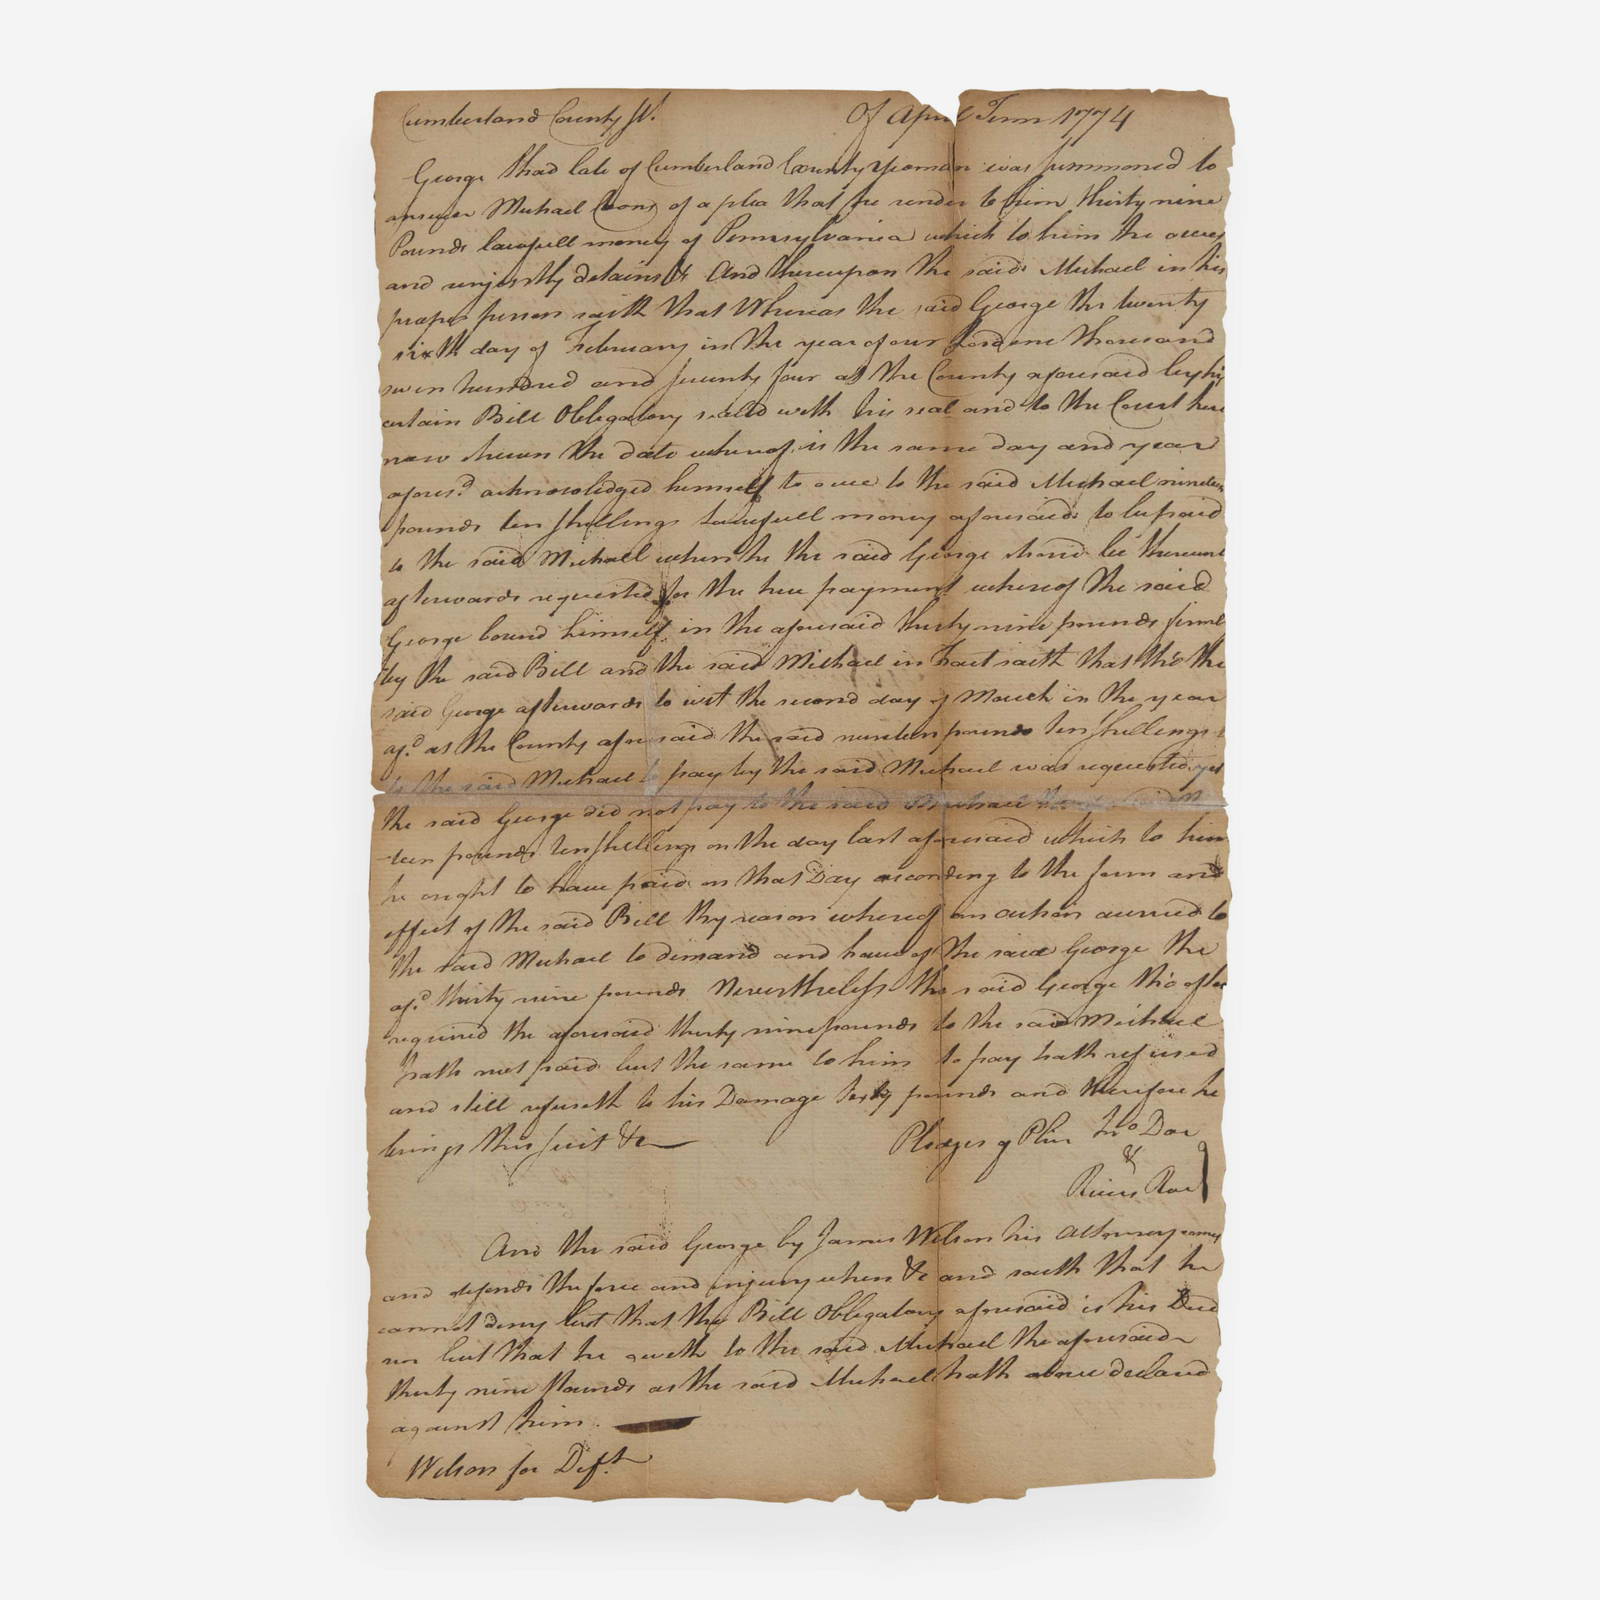 Cumberland County ss. Of April Term 1774
George Thad late of Cumberland County yeoman was summoned to
answer Michael of a plea that he render to him thirty nine
Pounds lawfull money of Pennsylvania which to him he owes
and unjustly detains &c And thereupon the said Michael in his
proper person saith that Whereas the said George the twenty
sixth day of February in the year of our Lord one thousand
seven hundred and seventy four at the County aforesaid by his
certain Bill Obligatory sealed with his seal and to the Court here
now shewn the date whereof is the same day and year
afores.d acknowledged himself to owe to the said Michael nineteen
pounds ten shillings lawfull money aforesaid to be paid
to the said Michael when he the said George should be thereunto
afterwards requested for the true payment whereof the said
George bound himself in the aforesaid thirty nine pounds firmly
by the said Bill and the said Michael in Fact saith that tho the
said George afterwards to wit the second day of March in the year
af.d at the County aforesaid the said nineteen pounds ten shillings
to the said Michael to pay by the said Michael was requested yet
the said George did not pay to the said Michael the said nine
-teen pounds ten shillings on the day last aforesaid which to him
he ought to have paid on that Day according to the form and
effect of the said Bill By reason whereof an action accrued to
the said Michael to demand and have of the said George the
af.d thirty nine pounds Nevertheless the said George tho often
required the aforesaid thirty nine pounds to the said Michael
hath not paid but the same to him to pay hath refused
and still refuseth to his Damage Sixty pounds and therefore he
brings this suit &c Pledges of Pltn Jno Doe
&
Rich Roe
And the said George by James Wilson his Attorney comes
and defends the force and injury when &c and saith that he
cannot deny but that the Bill Obligatory aforesaid is his Deed
nor but that he oweth to the said Michael the aforesaid
thirty nine Pounds as the said Michael hath above declared
against him.
Wilson for Deft.